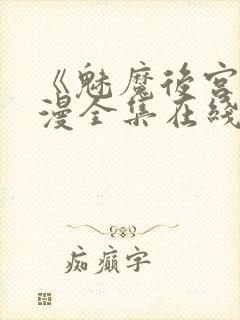 《魅魔後宮
漫全集在綫
痴癲字